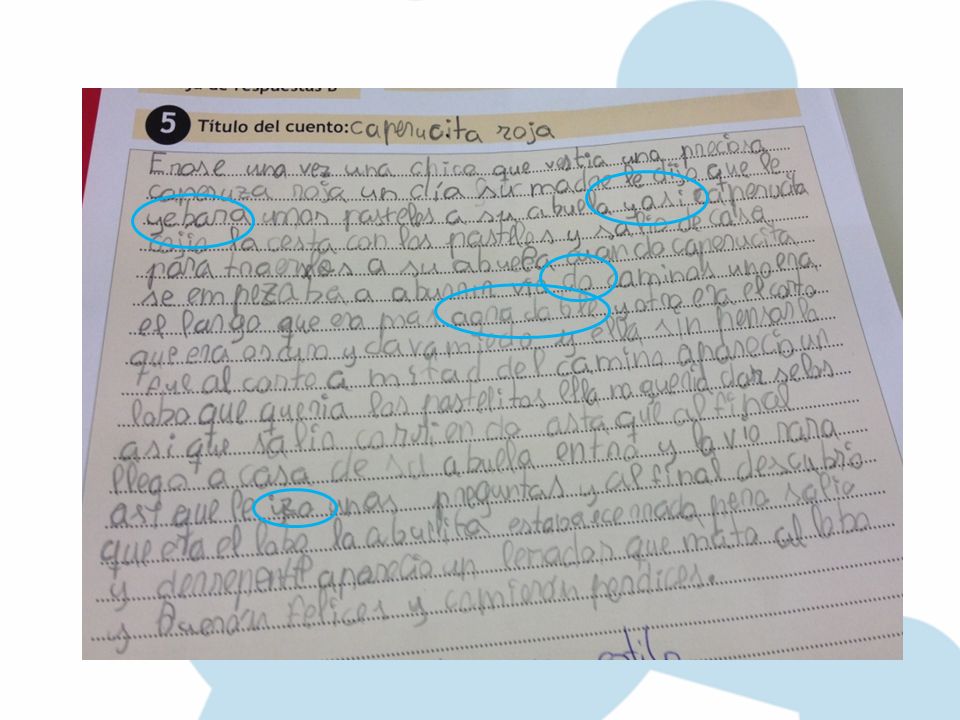 ja de respuestas B
5 Título del cuento: caperucita roja
Erase una vez una chica que vestia una preciosa
caperuza roja un dia su madre le dijo que le
yebara unos pasteles a su abuela y asi caperucita
cojio la cesta con los pasteles y salio de casa
para traerlos a su abuela cuando caperucita
se empezaba a aburrir vio do caminos uno era
el largo que era mas agra da ble y otro era el corto
que era oscuro y dava miedo y ella sin pensarlo
fue al corto a mitad del camino aparecio un
lobo que queria los pastelitos ella no queria dar selos
asi que salio corriendo asta que al final
llego a casa de su abuela entro y la vio rara
asi que le izo unas preguntas y al final descubrio
que era el lobo la abuelita estaba ecerrada pero salio
y derrepente aparecio un leñador que mata al lobo
y fueron felices y comieron perdices.
estilo